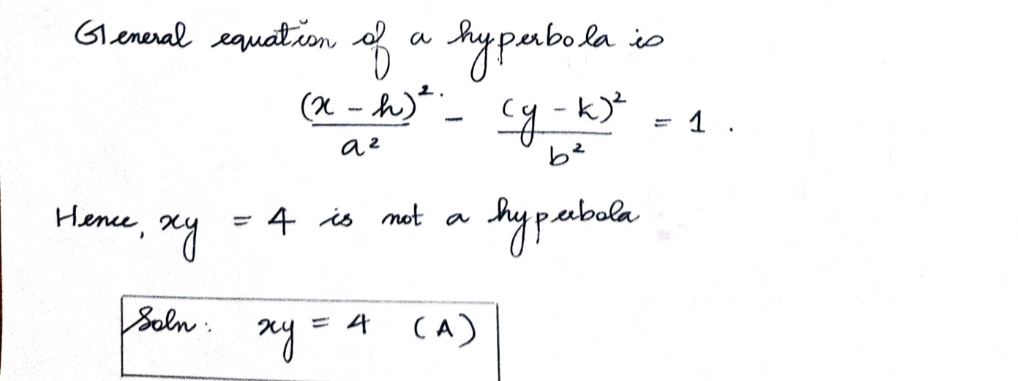 General equation of a hyperbola is
(x - h)²/a² - (y - k)²/b² = 1.
Hence, xy = 4 is not a hyperbola
Soln: xy = 4 (A)